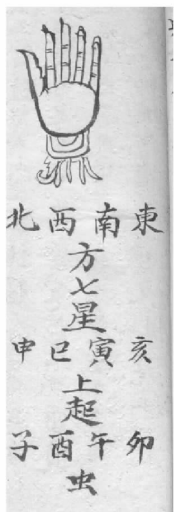 東南西北
方七星
亥寅巳申
上起
卯午酉子
虫